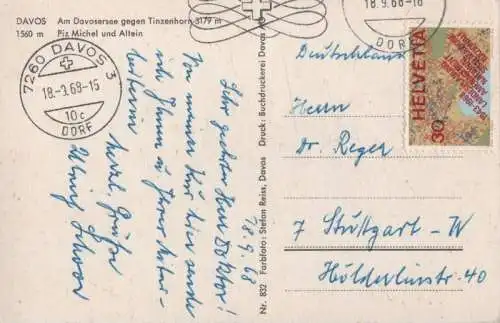 DAVOS Am Davosersee gegen Tinzenhorn 3179 m
1560 m Piz Michel und Altein
7260 DAVOS 3
18.-9.68-15
10c
DORF
18.9.68
Sehr geehrter Herr Doktor!
Von meiner Kur hier sende
ich Ihnen u Ihrer
herzl. Grüße
Nr. 832 Farbfoto: Stefan Reiss, Davos Druck: Buchdruckerei Davos AG
18.9.68-18
DORF
HELVETIA
30
Deutschland
Herrn
Dr. Reger
7 Stuttgart-W
Hölderlinstr. 40